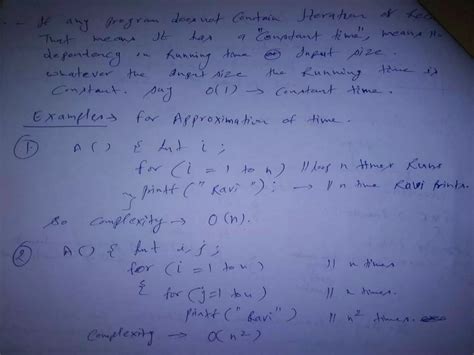 If any program does not contain Iteration or Recu
That means It has a "Constant time", means no
dependency on Running time on Input size.
whatever the Input size the Running time is
Constant. say O(1) → Constant time.
Examples → for Approximation of time.
① A() { Int i ;
for (i = 1 to n) // loop n times Runs
} printf("Ravi"); → // n time Ravi prints.
So complexity → O(n).
② A() { Int i, j ;
for (i = 1 to n) // n times
{ for (j=1 to n) // n times.
printf("Ravi") // n² times.
Complexity → O(n²)